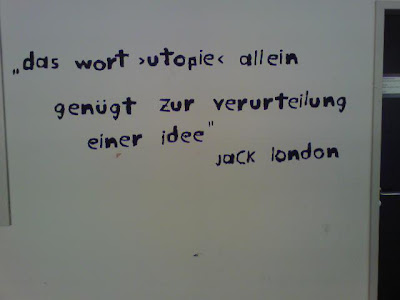 „das wort ›utopie‹ allein
genügt zur verurteilung
einer idee"
Jack london